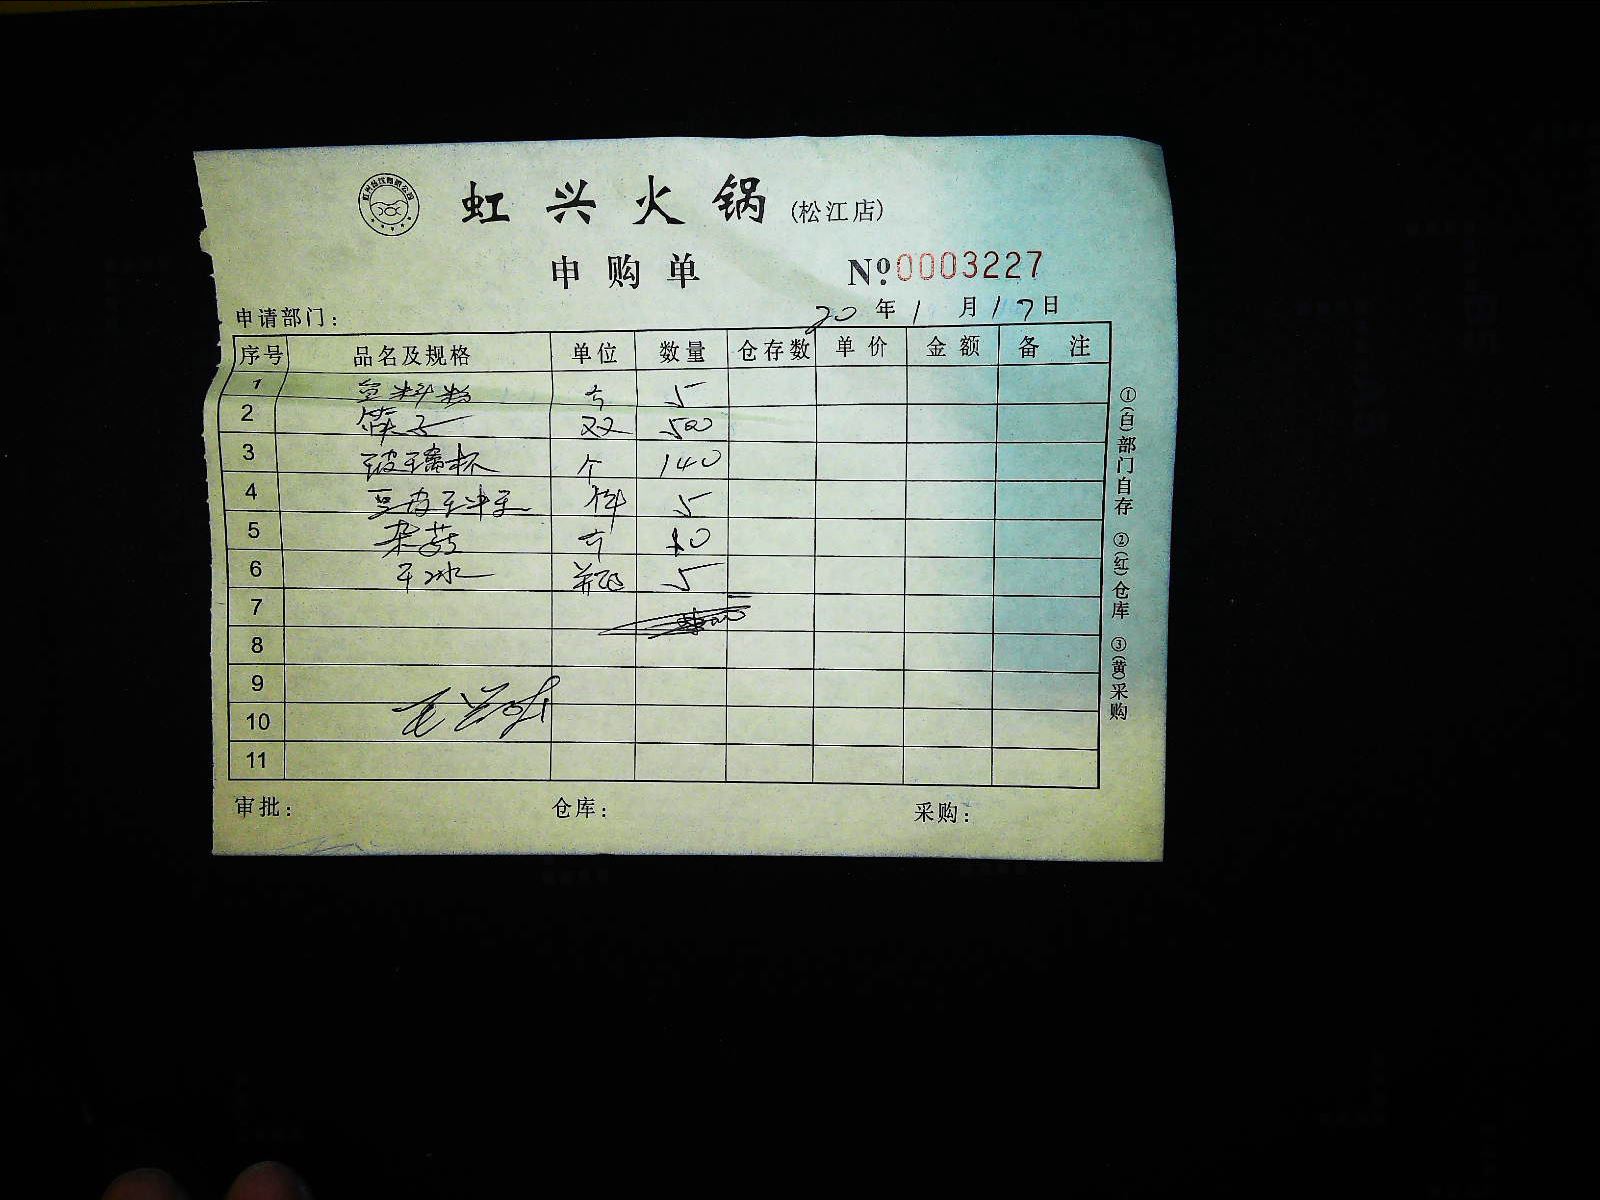 虹兴火锅(松江店)
申购单 Nº:0003227
申请部门: 20年1月17日
序号 品名及规格 单位 数量 仓存数 单价 金额 备注
1 鱼料粉 5
2 筷子 双 500
3 玻璃杯 个 140
4 件 5
5 杂菇 斤 10
6 干冰 瓶 5
7
8
9
10
11
审批: 仓库: 采购:
①(白)部门自存 ②(红)仓库 ③(黄)采购